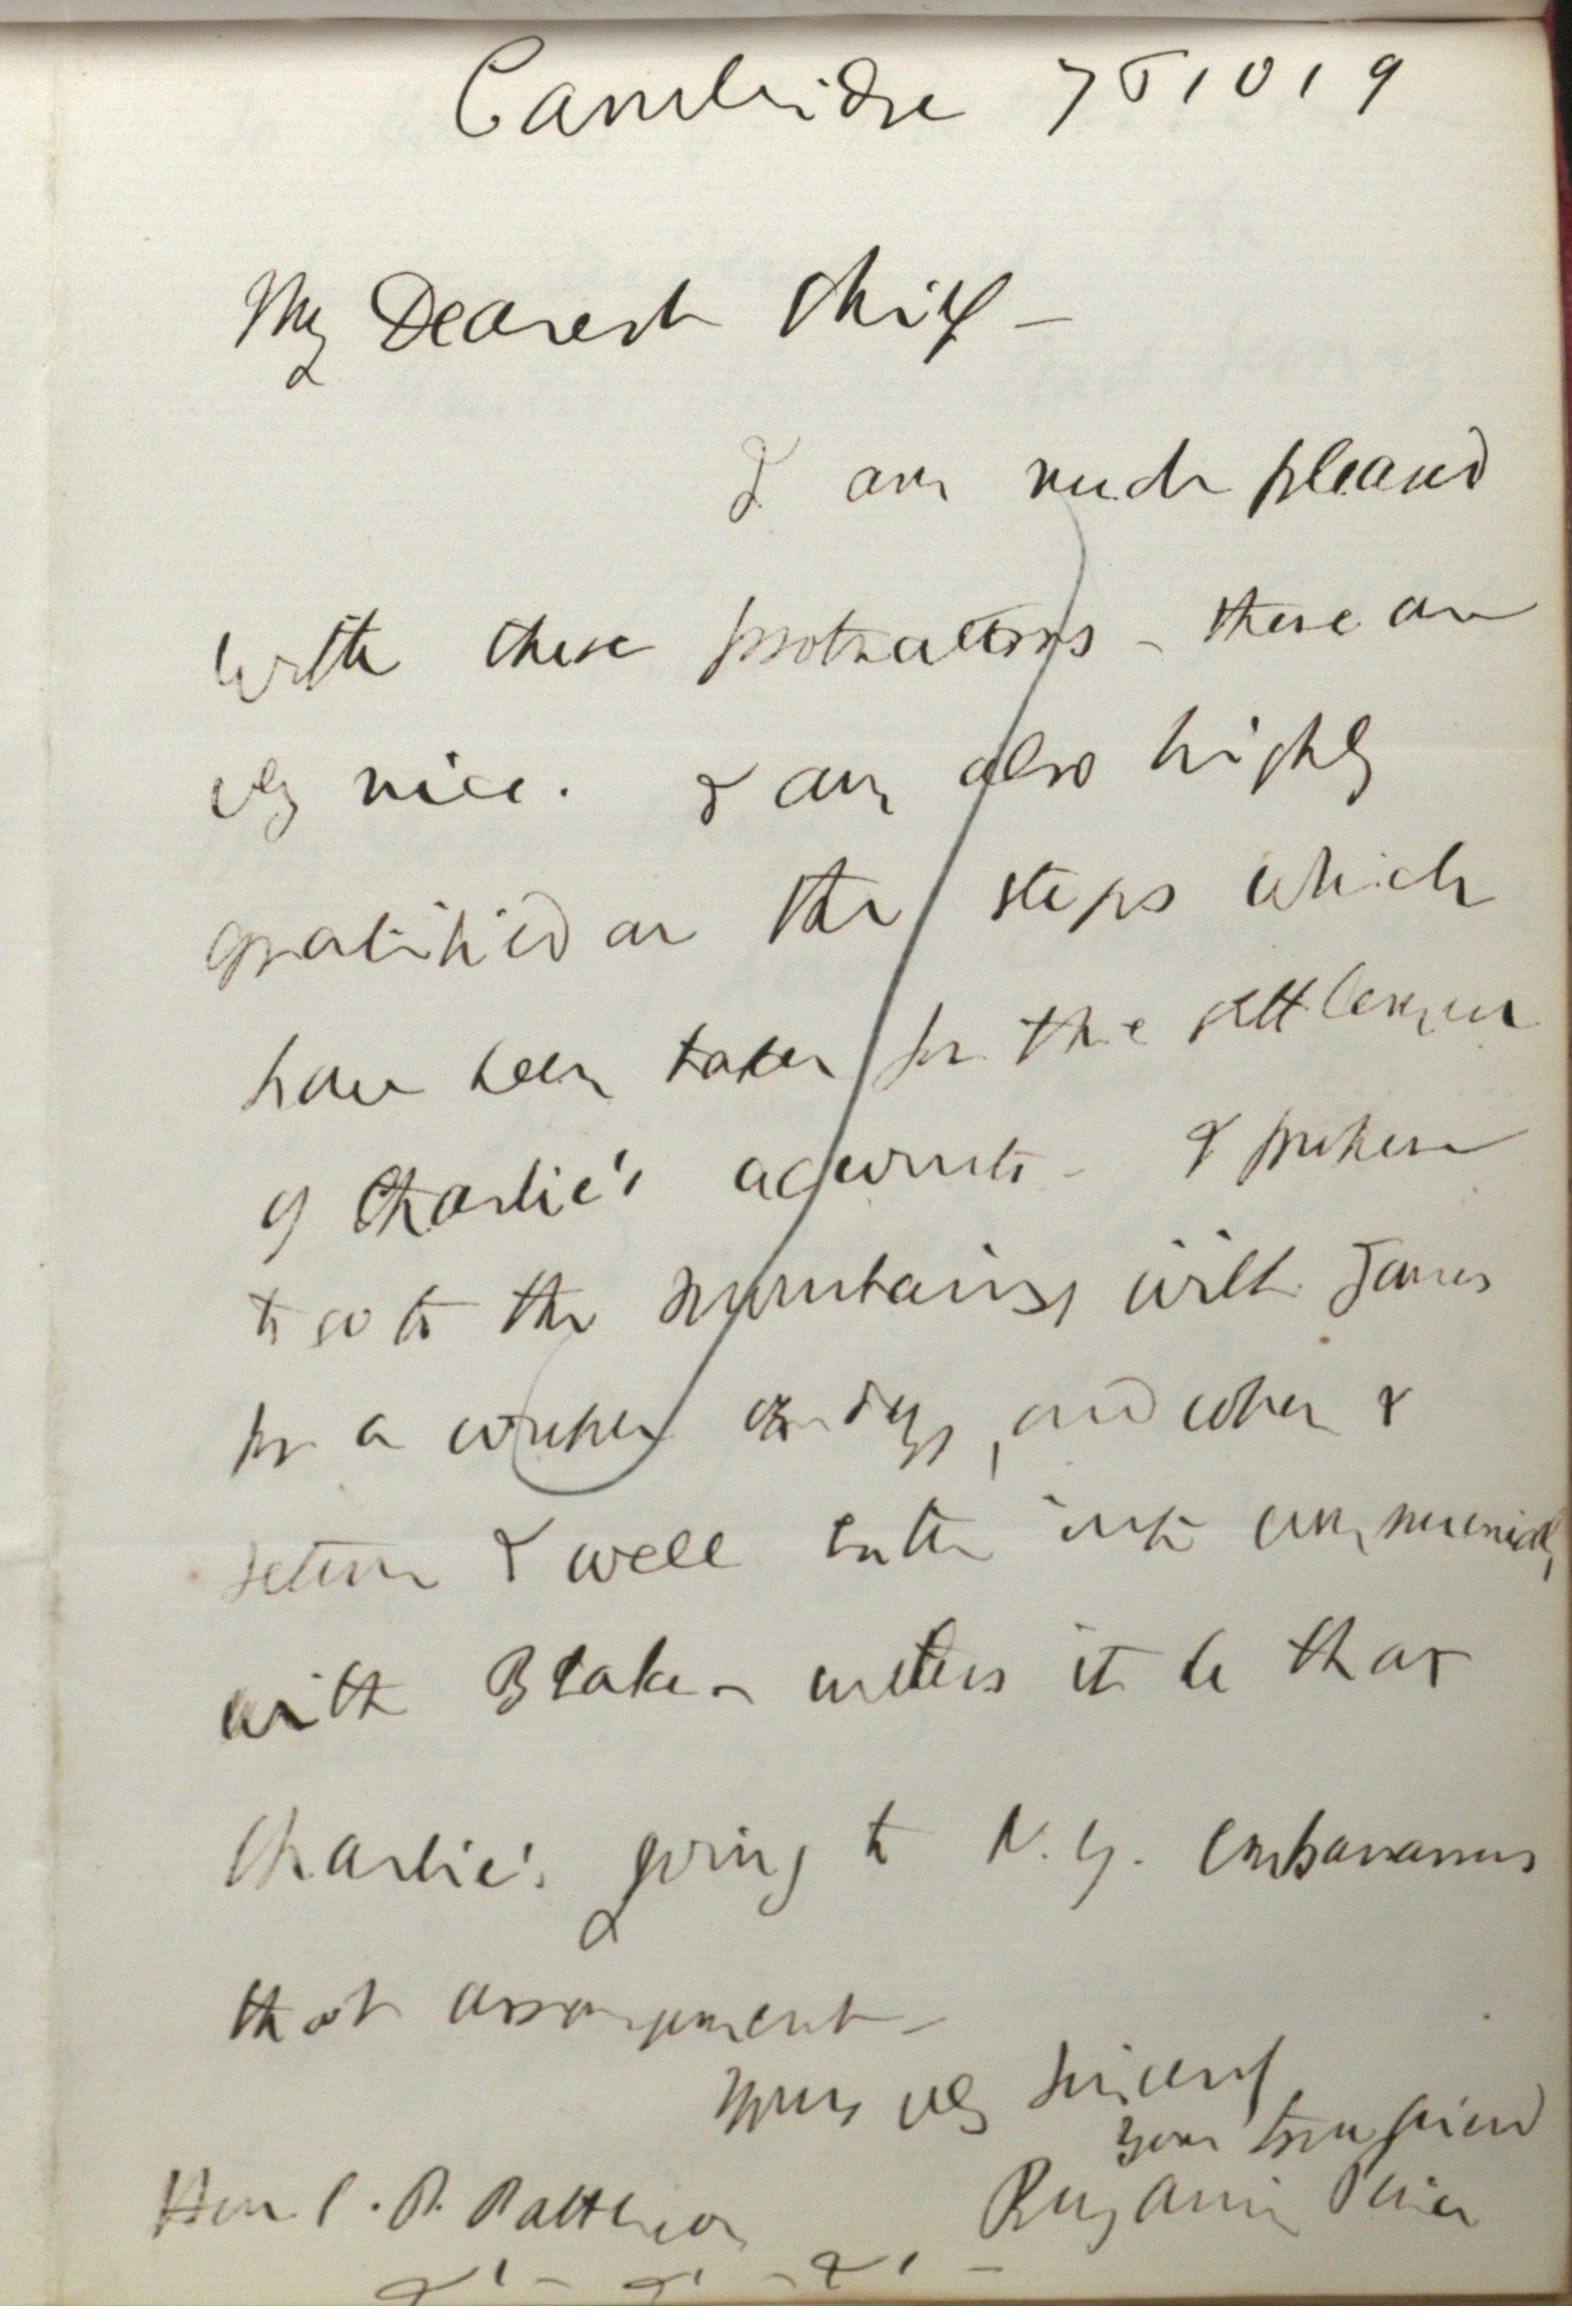 Cambridge 75 10 19
My Dearest Chief —
I am much pleased
with these protractors - these are
very nice. I am also highly
gratified at the steps which
have been taken for the settlement
of Charlie's accounts - I propose
to go to the mountains with James
for a couple of days, and when I
return I will enter into communication
with Blake - unless it be that
Charlie's going to N.Y. embarrasses
that arrangement -
Yours very sincerely
your true friend
Hon C. P. Patterson Benjamin Peirce